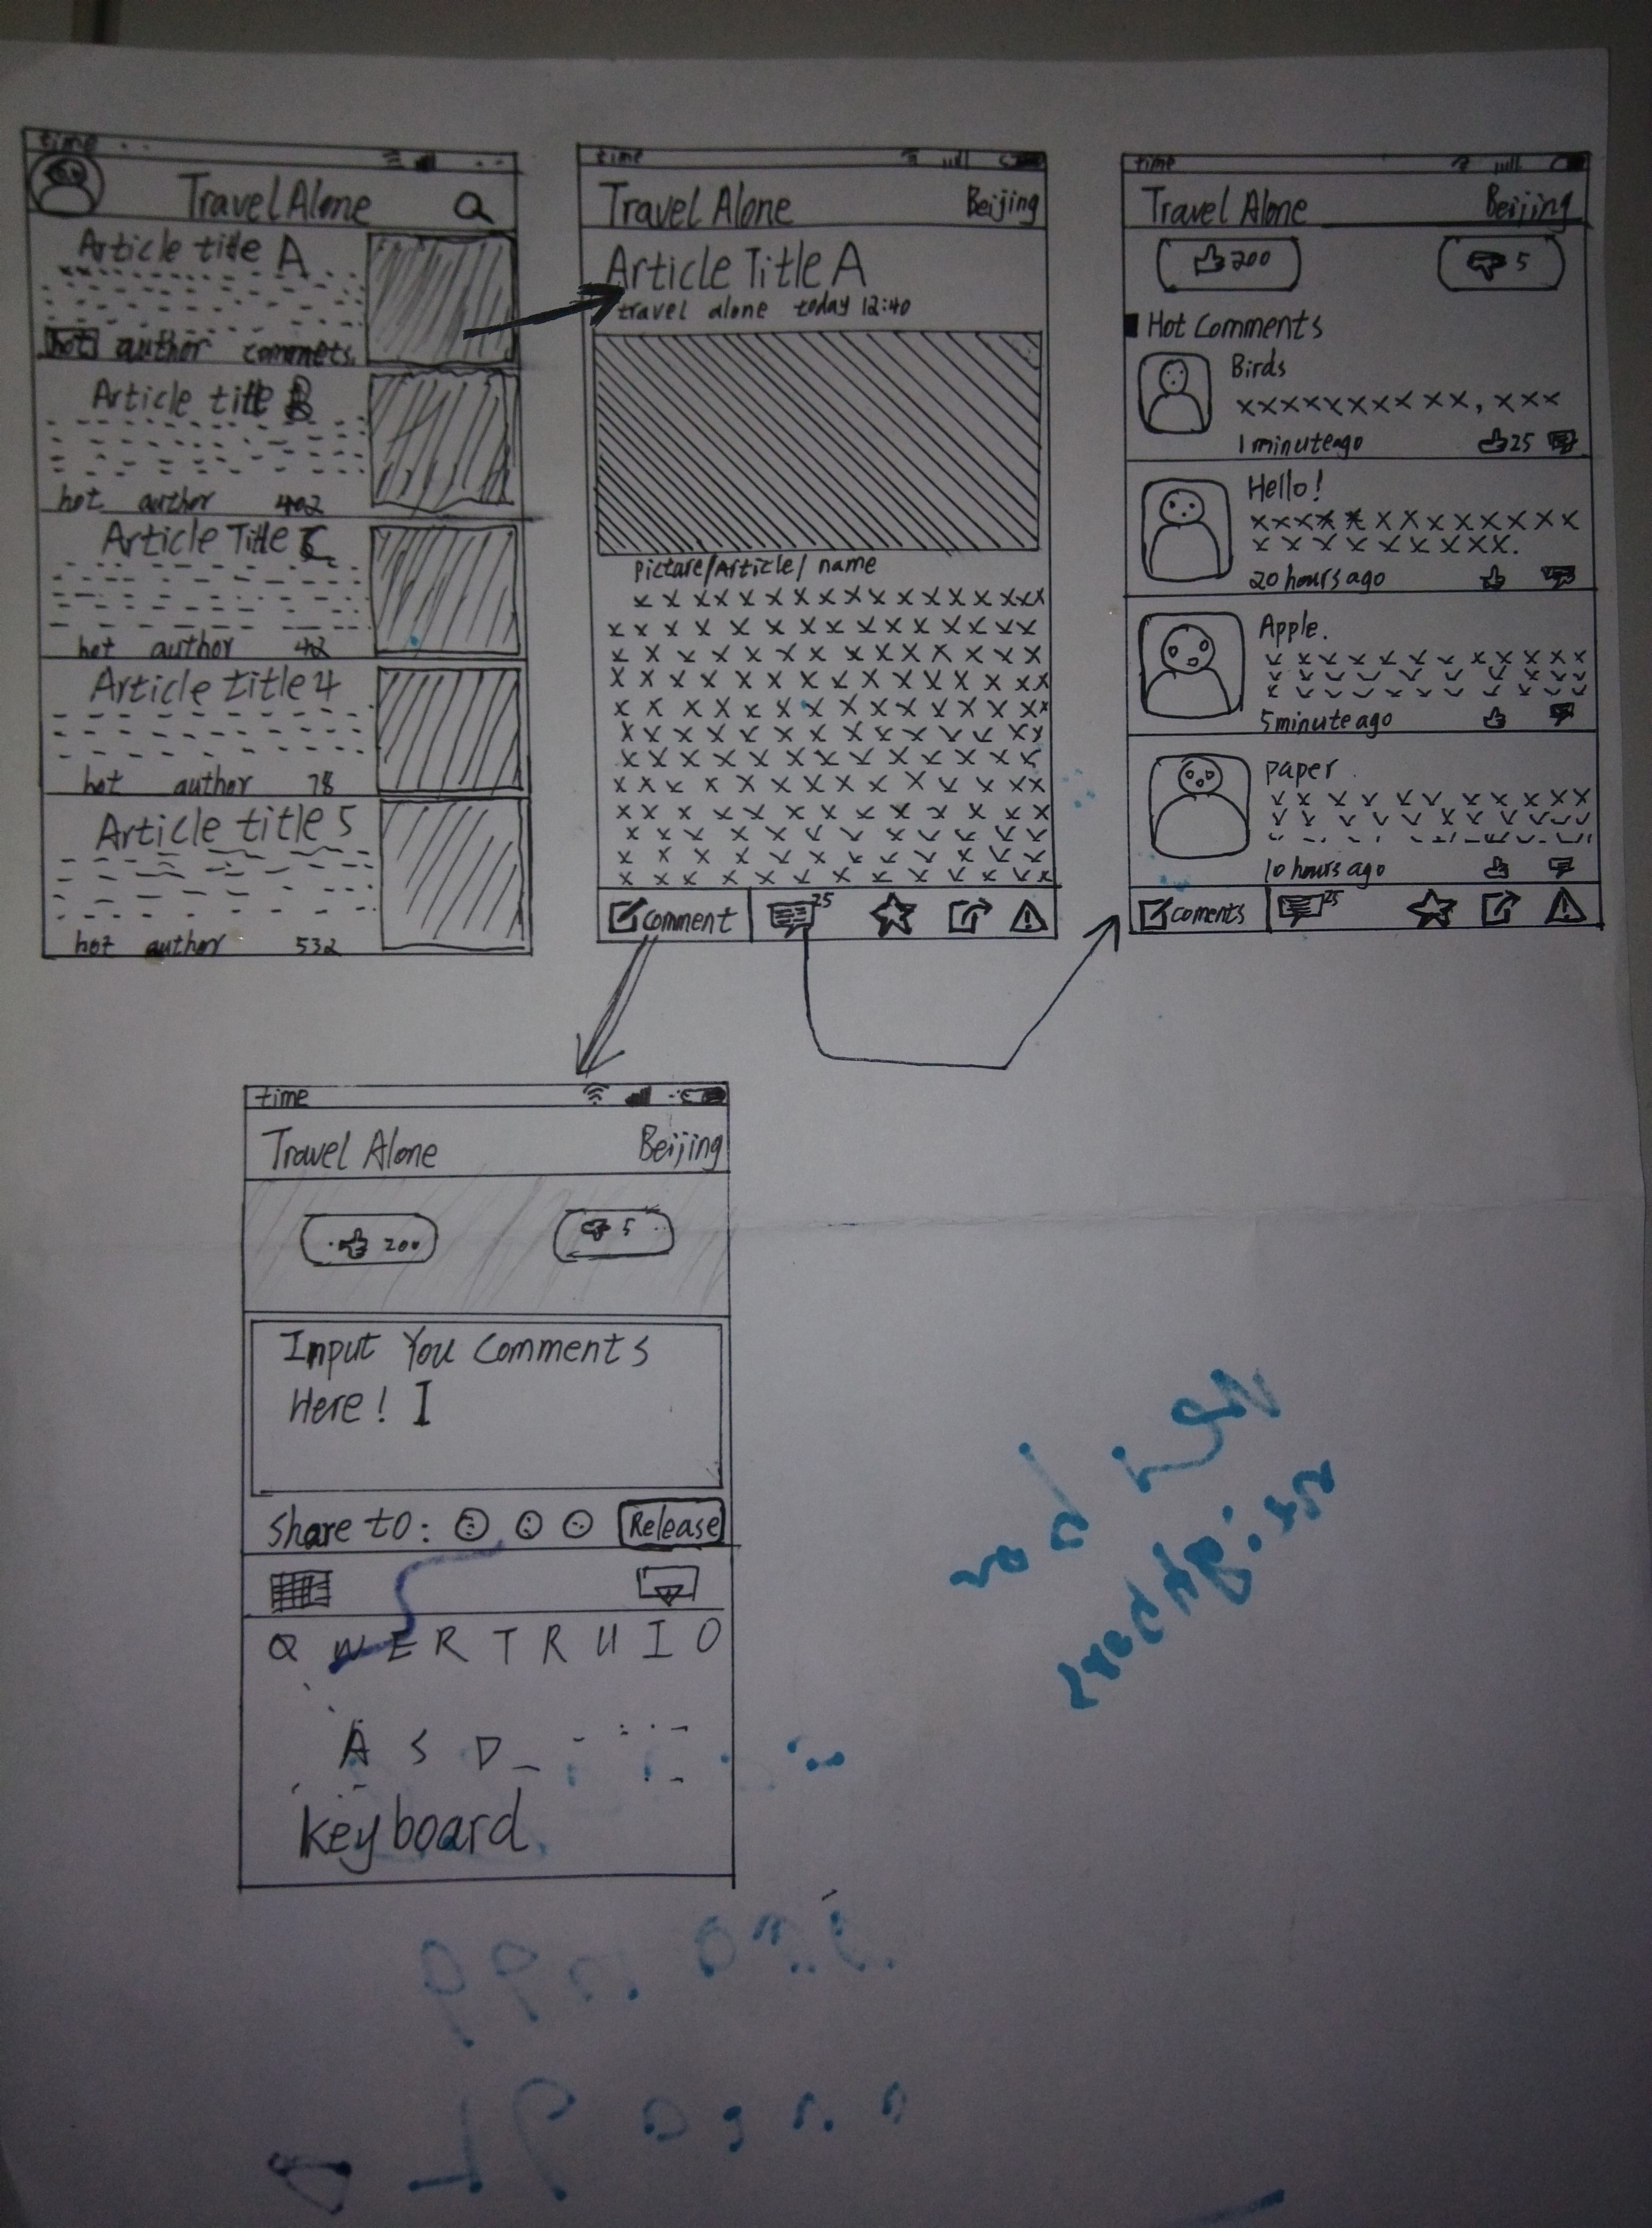 time
Travel Alone
Article title A
hot author commets.
Article title B
hot author 402
Article Title C
hot author 42
Article title 4
hot author 78
Article title 5
hot author 532
time
Travel Alone Beijing
Article Title A
travel alone today 12:40
picture/Article/ name
comment 25
time
Travel Alone Beijing
200 5
Hot Comments
Birds
xxxxxxxxxx, xxx
1 minute ago 25
Hello!
20 hours ago
Apple.
5 minute ago
paper
10 hours ago
coments 25
time
Travel Alone Beijing
200 5
Input You Comments
Here! I
Share to: Release
Q W E R T R U I O
A S D
keyboard